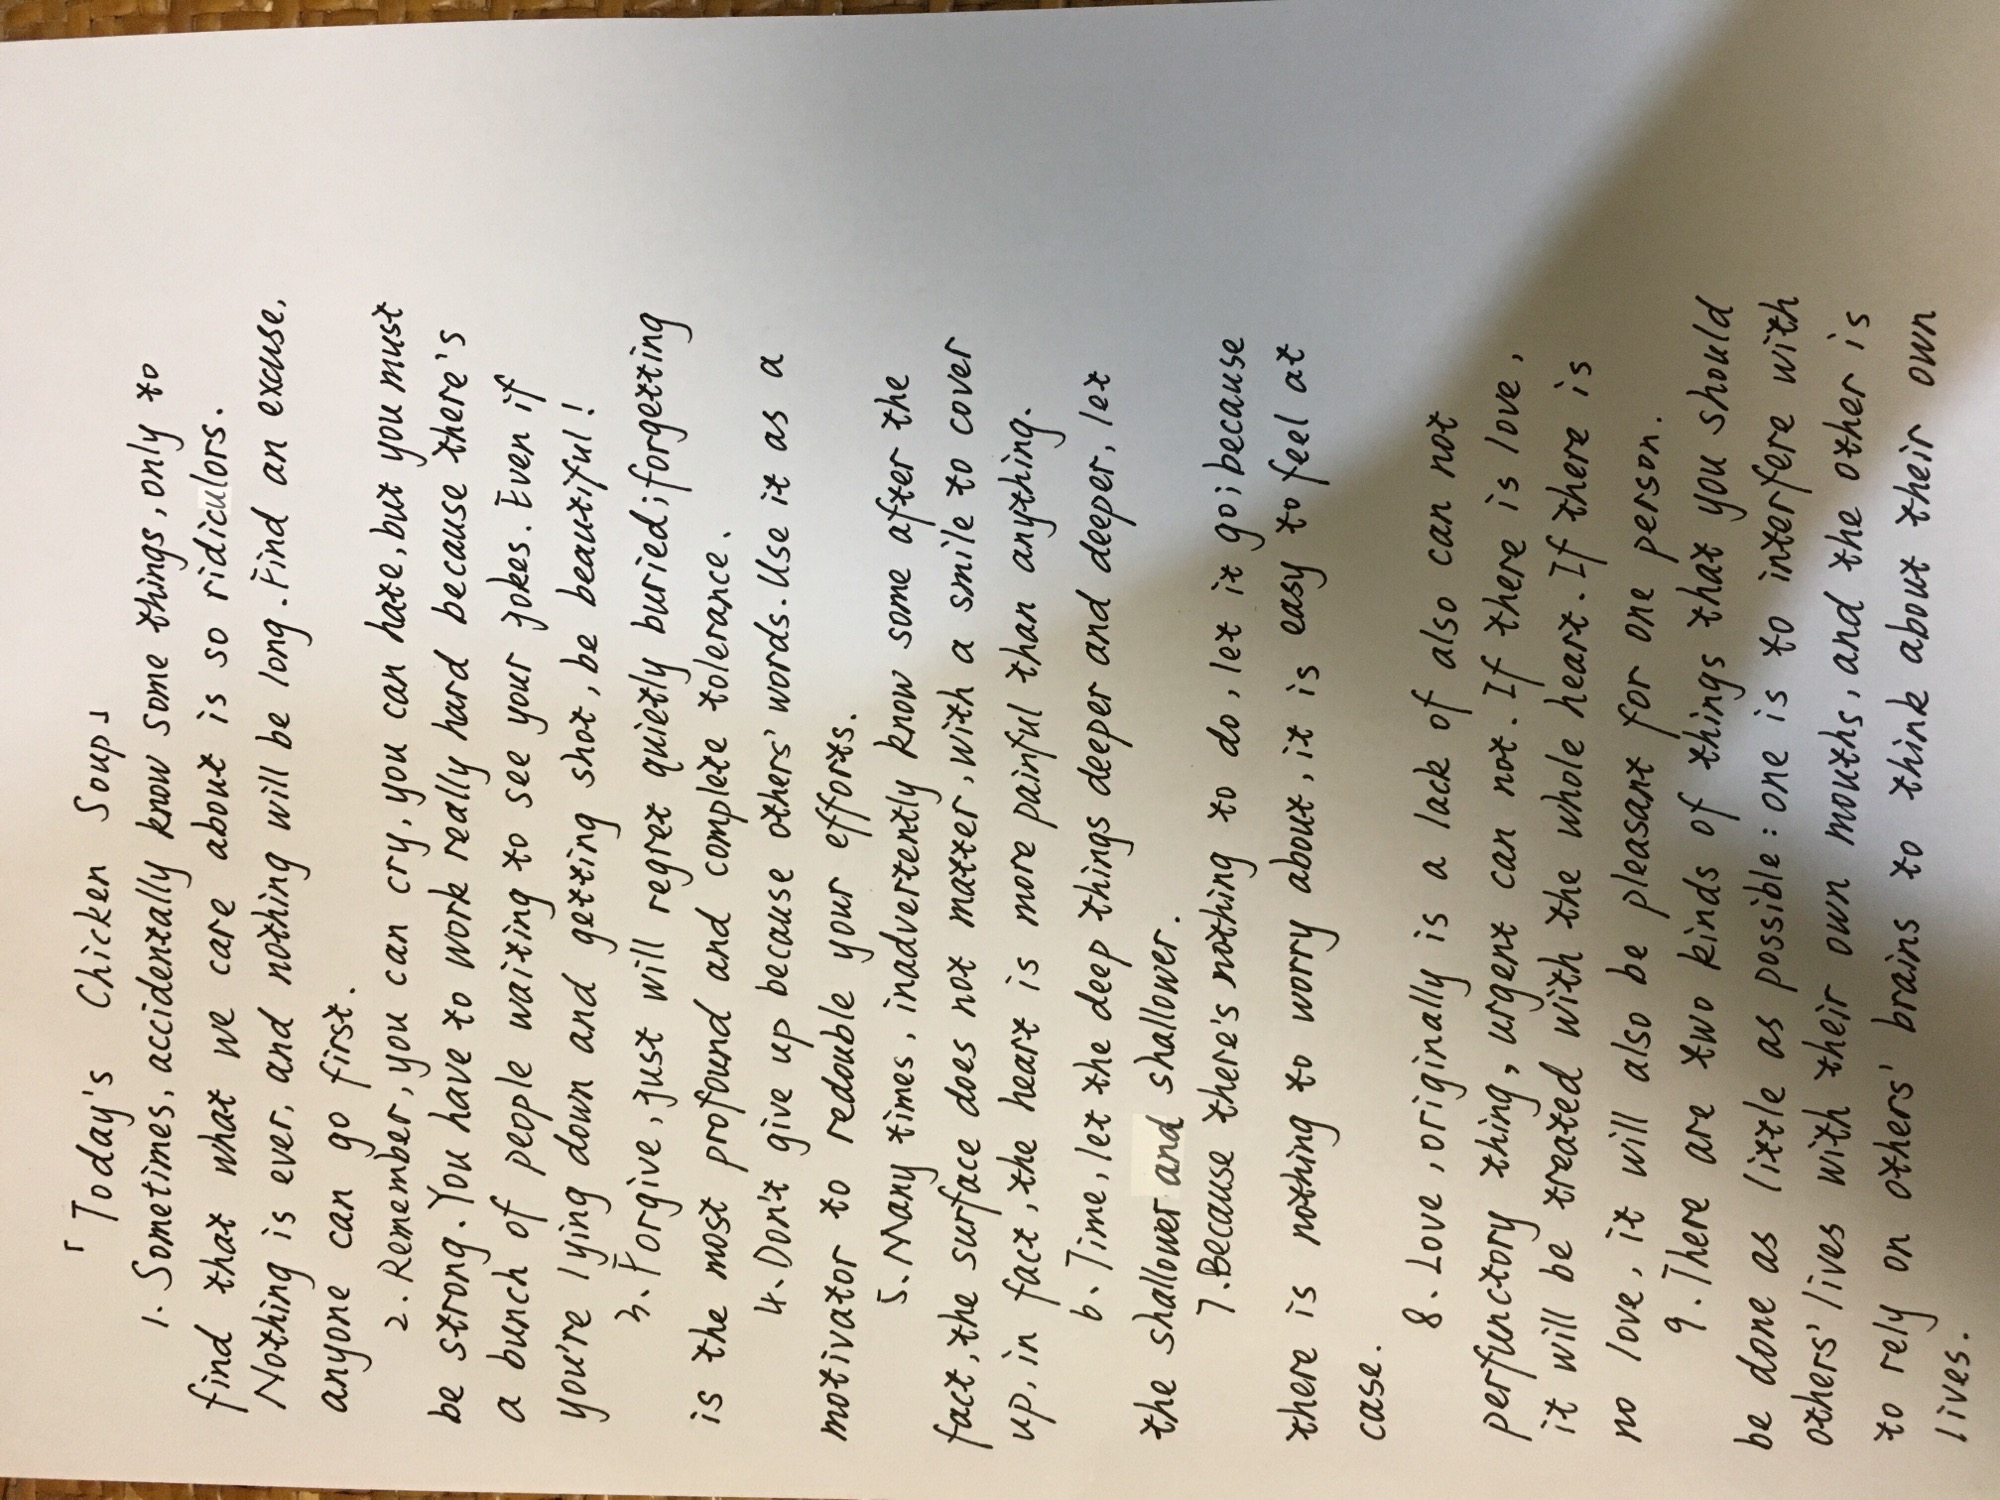 「Today's Chicken Soup」
1. Sometimes, accidentally know some things, only to
find that what we care about is so ridiculors.
Nothing is ever, and nothing will be long. Find an excuse,
anyone can go first.
2. Remember, you can cry, you can hate, but you must
be strong. You have to work really hard because there's
a bunch of people waiting to see your jokes. Even if
you're lying down and getting shot, be beautiful!
3. Forgive, just will regret quietly buried; forgetting
is the most profound and complete tolerance.
4. Don't give up because others' words. Use it as a
motivator to redouble your efforts.
5. Many times, inadvertently know some after the
fact, the surface does not matter, with a smile to cover
up, in fact, the heart is more painful than anything.
6. Time, let the deep things deeper and deeper, let
the shallower and shallower.
7. Because there's nothing to do, let it go; because
there is nothing to worry about, it is easy to feel at
case.
8. Love, originally is a lack of also can not
perfunctory thing, urgent can not. If there is love,
it will be treated with the whole heart. If there is
no love, it will also be pleasant for one person.
9. There are two kinds of things that you should
be done as little as possible: one is to interfere with
others' lives with their own mouths, and the other is
to rely on others' brains to think about their own
lives.